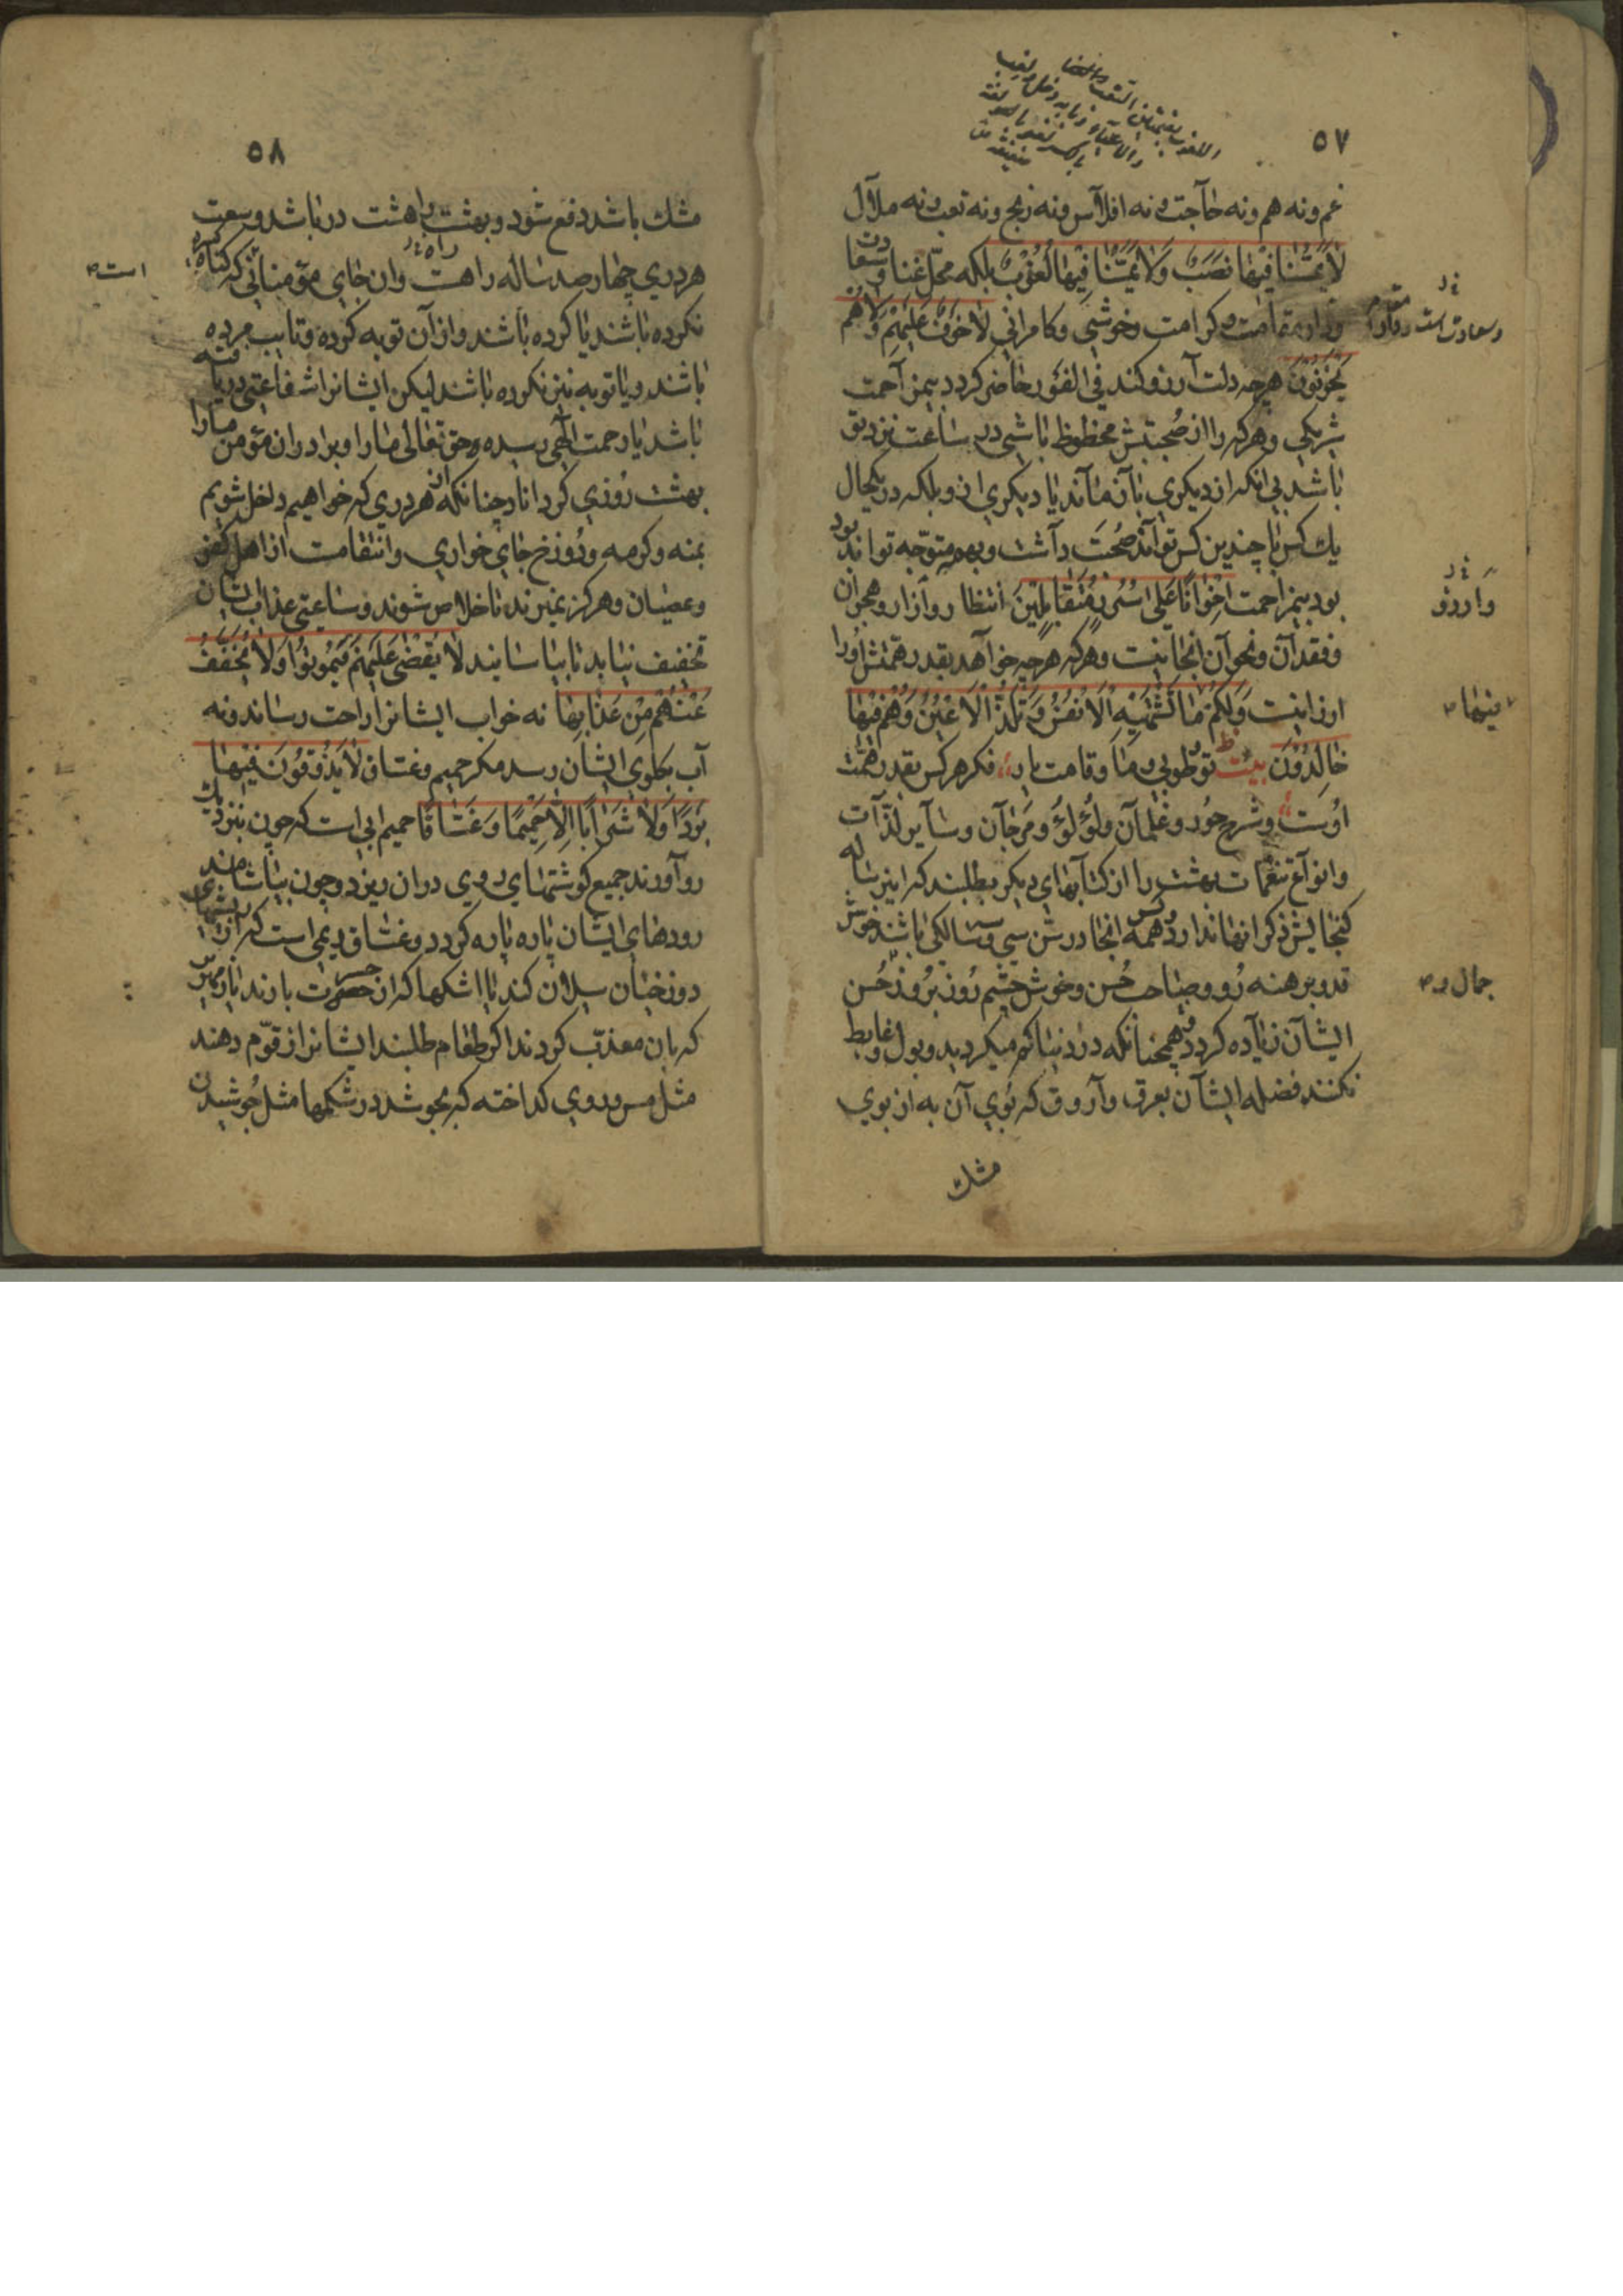 ۵۷
غم ونه هم ونه حاجت ونه افلاس ونه رنج ونه تعب ونه ملال
لَا يَمَسُّنَا فِيهَا نَصَبٌ وَلَا يَمَسُّنَا فِيهَا لُغُوبٌ بلكه محل غنا و
ودار كرامت وخوشي وكامراني لَا خَوْفٌ عَلَيْهِمْ وَلَا هُمْ
يَحْزَنُونَ هرچه دلت آرزو كند في الفور حاضر كردد بيمزاحمت
شريكي وهركه را از صحبتش محظوظ باشي در ساعت نزد تو
باشد بي انكه از ديكري بآن ماند يا ديكري از و بلكه در يكحال
يك كس با چندين كس تواند صحبت داشت وبهمه متوجه تواند بود
بود بيمزاحمت إِخْوَانًا عَلَى سُرُرٍ مُتَقَابِلِينَ انتظار وآزار وهجران
وفقدان ونحو آن انجا نيست وهركه هرچه خواهد بقدر همتش اورا
ارزانيست وَلَكُمْ مَا تَشْتَهِيهِ الْأَنْفُسُ وَتَلَذُّ الْأَعْيُنُ وَهُمْ فِيهَا
خَالِدُونَ بيت تو طوبي وما وقامت يار فكر هركس بقدر همت
اوست وشرح حور وغلمان ولؤلؤ ومرجان وساير لذات
وانواع تنعمات بهشت را از كتابهاي ديكر بطلبند كه اين رساله
كنجايش ذكر انها ندارد وهمه انجا در سن سي وسه سالكي باشند خوش
قد وبرهنه رو وصباحت حسن وخوش چشم روز بروز حسن
ايشان زياده كردد همچنانكه در دنيا كم ميكرديد وبول وغايط
نكنند فضله ايشان بعرق وآروق كه بوي آن به از بوي
مشك
وآروق
فيها
جمال و
۵۸
مشك باشد دفع شود وبهشت را هشت در باشد وسعت
هر دري چهار صد ساله راهست وان جاي مؤمناني كه كناه
نكرده باشند يا كرده باشند واز آن توبه كرده وتايب مرده
باشند ويا توبه نيز نكرده باشند ليكن ايشانرا شفاعتي دريافته
باشد يا رحمت الهي رسيده وحق تعالى مارا وبرادران مؤمن مارا
بهشت روزي كرداناد چنانكه از هر دري كه خواهيم داخل شويم
بمنه وكرمه ودوزخ جاي خواري وانتقامت از اهل كفر
وعصيان وهركز نميرند تا خلاص شوند وساعتي عذاب ايشان
تخفيف نيابد تا بياسايند لَا يُقْضَى عَلَيْهِمْ فَيَمُوتُوا وَلَا يُخَفَّفُ
عَنْهُمْ مِنْ عَذَابِهَا نه خواب ايشانرا راحت رساند ونه
آب بكلوي ايشان رسد مكر حميم وغساق لَا يَذُوقُونَ فِيهَا
بَرْدًا وَلَا شَرَابًا إِلَّا حَمِيمًا وَغَسَّاقًا حميم ابي است كه چون نزديك
رو آورند جميع كوشتهاي روي در ان ريزد وچون بياشامند
رودهاي ايشان پاره پاره كردد وغساق ريمي است كه از
دوزخيان سيلان كند يا اشكها كه از حسرت بارند يا
كه بان معذب كردند اكر طعام طلبند ايشانرا زقوم دهند
مثل مس وروي كداخته كه بجوشد در شكمها مثل جوشيدن
است